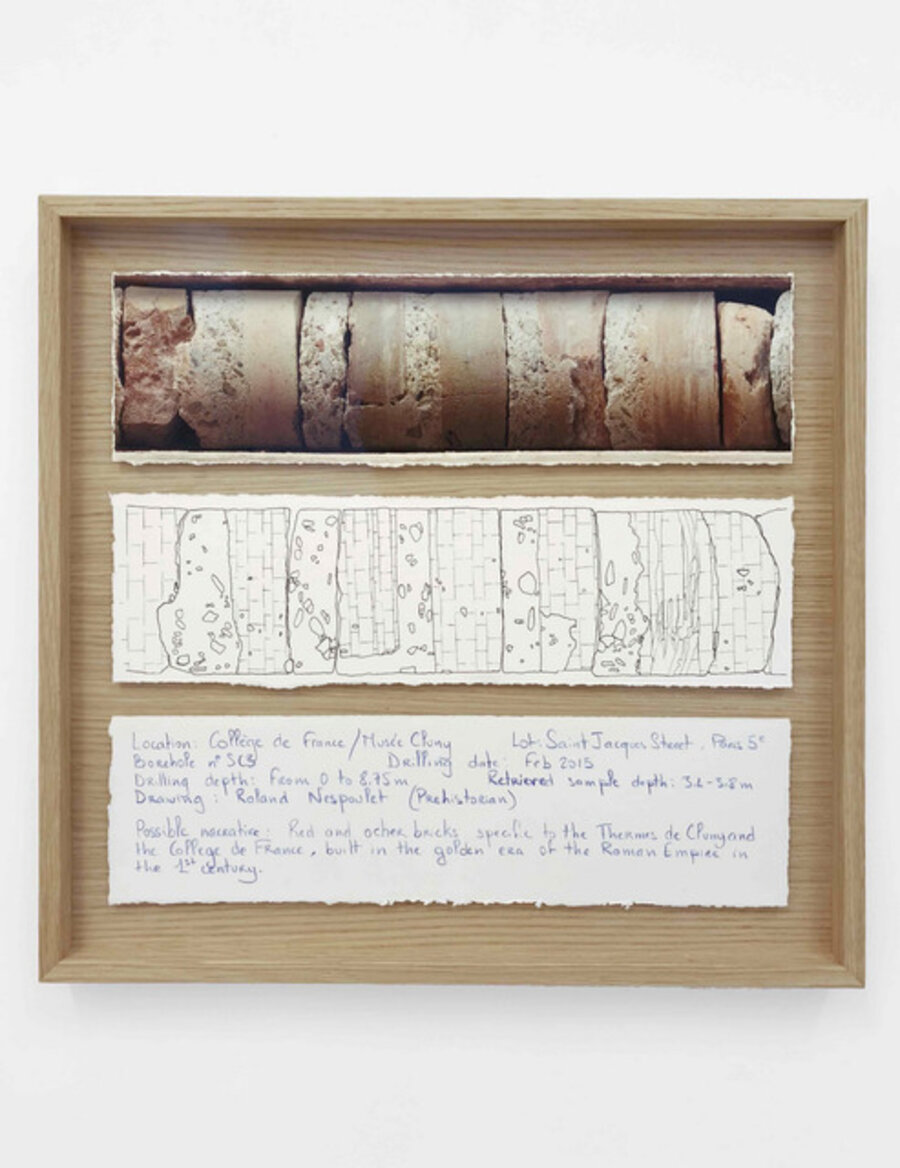 Location: Collège de France/Musée Cluny Lot: Saint Jacques Street, Paris 5e
Borehole n° SC3 Drilling date: Feb 2015
Drilling depth: From 0 to 8.75m Retrieved sample depth: 5.2-5.8m
Drawing: Roland Nespoulet (Prehistorian)
Possible narrative: Red and ocher bricks specific to the Thermes de Cluny and
the College de France, built in the golden era of the Roman Empire in
the 1st century.